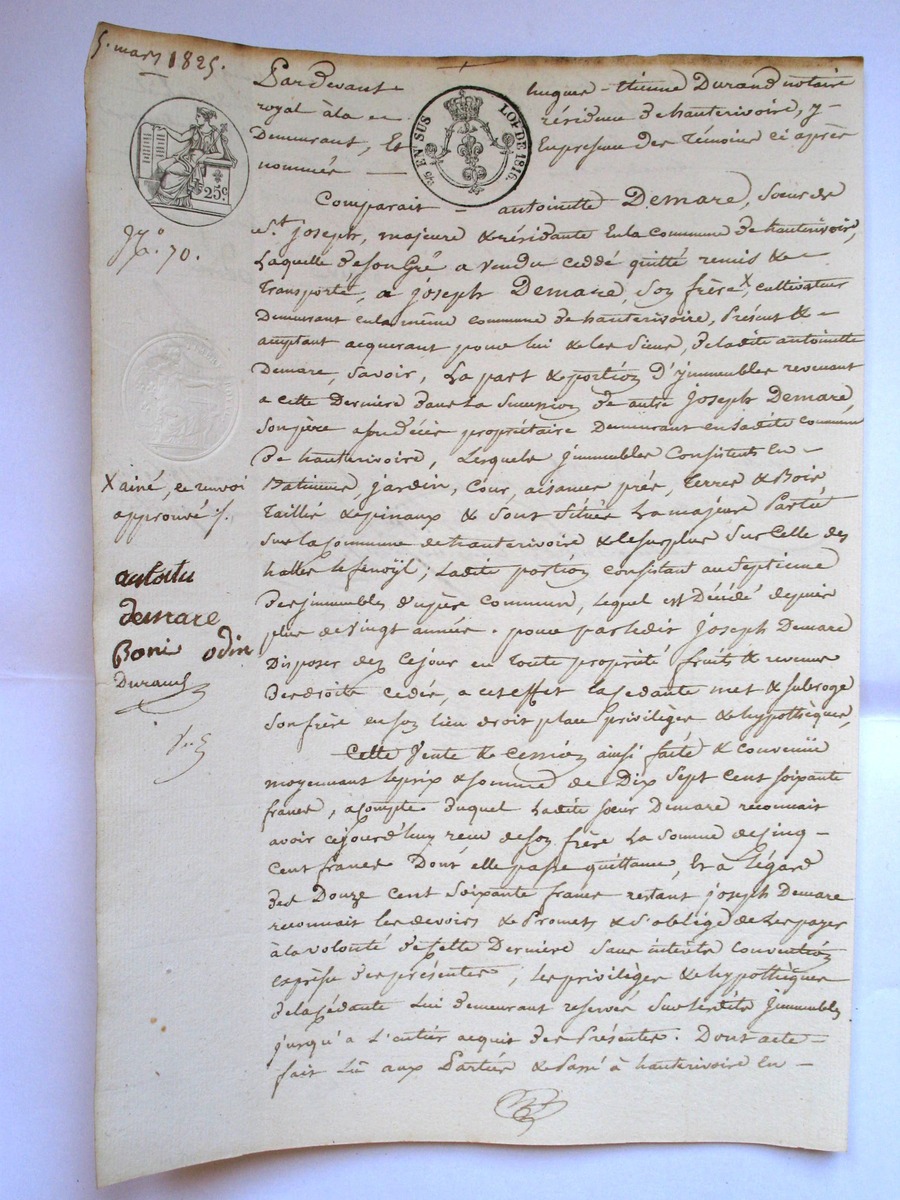 5. mars 1825.
Pardevant hugues-étienne Durand notaire
royal à la résidence de hauterivoire, y
Demeurant, Et En presence des Témoins ci après
nommés
EN SUS
LOI DE 1816.
25c.
No. 70.
Comparait antoinette Demare, soeur de
St. joseph, majeure & résidante En la commune de hauterivoire,
Laquelle de son Gré a vendu cedé quitté remis &
Transporté, a joseph Demare, son frère X, cultivateur
Demeurant en la même commune de hauterivoire, Présent &
acceptant acquerant pour lui & les siens, de ladite antoinette
Demare, savoir, La part & portion d'jmmeubles revenant
a cette Derniere dans La succession de autre joseph Demare,
son père a son décès propriétaire Demeurant en ladite commune
de hauterivoire, Lesquels jmmeubles Consistent En
Batimens, jardin, Cour, aisances, prés, Terres & Bois
Taillis & pinaux & sont situés La majeure Partie
sur la Commune de hauterivoire & le surplus sur Celle des
halles le fenoÿl; Ladite portion consistant au septieme
des jmmeubles du père commun, lequel est Décédé depuis
plus de vingt années. pour par ledit joseph Demare
Disposer dez ce jour en toute propriété fruits & revenus
des droits cedés, a cet effet la Cédante met & subroge
son frère en son lieu droit place privilèges & hypothèques,
Cette Vente & Cession ainsi faite & convenüe
moyennant le prix & somme de Dix Sept Cent soixante
francs, acompte duquel Ladite soeur Demare reconnait
avoir cejourd'huy reçu de son frère La somme de Cinq
Cent francs Dont elle passe quittance, Et à l'égard
des Douze cent soixante francs restant joseph Demare
reconnait les devoirs & Promets & s'oblige de les payer
à la volonté de cette Derniere sans intérêts convention
expresse des présentes, les privilèges & hypothèques
de la Cédante lui demeurant reservés sur lesdits jmmeubles
jusqu'a l'entier acquit des Présentes. Dont acte
fait Lû aux Parties & Passé à hauterivoire En
X ainé, ce renvoi
approuvé
demare
Boni odin
Durand